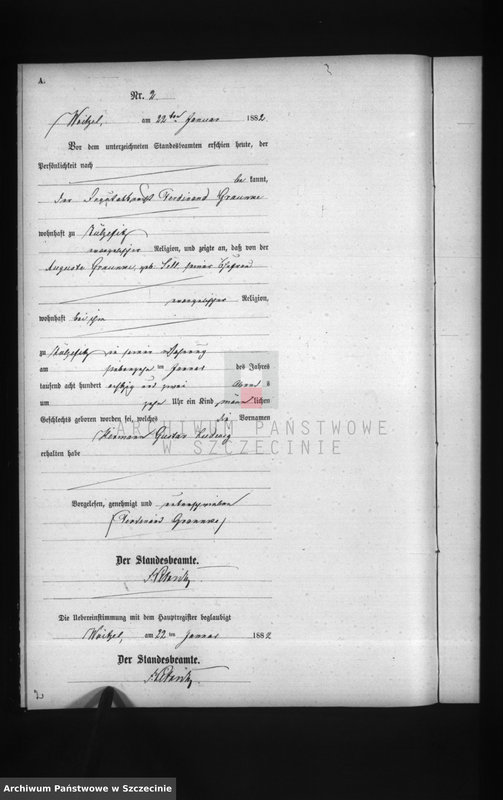 A.
Nr. 2
Woitzel, am 22ten Januar 1882.
Vor dem unterzeichneten Standesbeamten erschien heute, der
Persönlichkeit nach
be kannt,
der Ferdinand Graunke
wohnhaft zu
evangelischer Religion, und zeigte an, daß von der
Auguste Graunke, geb. seiner Ehefrau
evangelischer Religion,
wohnhaft bei ihm
zu in seiner Wohnung
am siebenzehn ten Januar des Jahres
tausend acht hundert achtzig und zwei s
um zehn Uhr ein Kind männ lichen
Geschlechts geboren worden sei, welches die Vornamen
Hermann Gustav Ludwig
erhalten habe
ARCHIWUM PAŃSTWOWE
W SZCZECINIE
Vorgelesen, genehmigt und unterschrieben
Ferdinand Graunke
Der Standesbeamte.
Die Uebereinstimmung mit dem Hauptregister beglaubigt
Woitzel, am 22 ten Januar 1882
Der Standesbeamte.
Archiwum Państwowe w Szczecinie